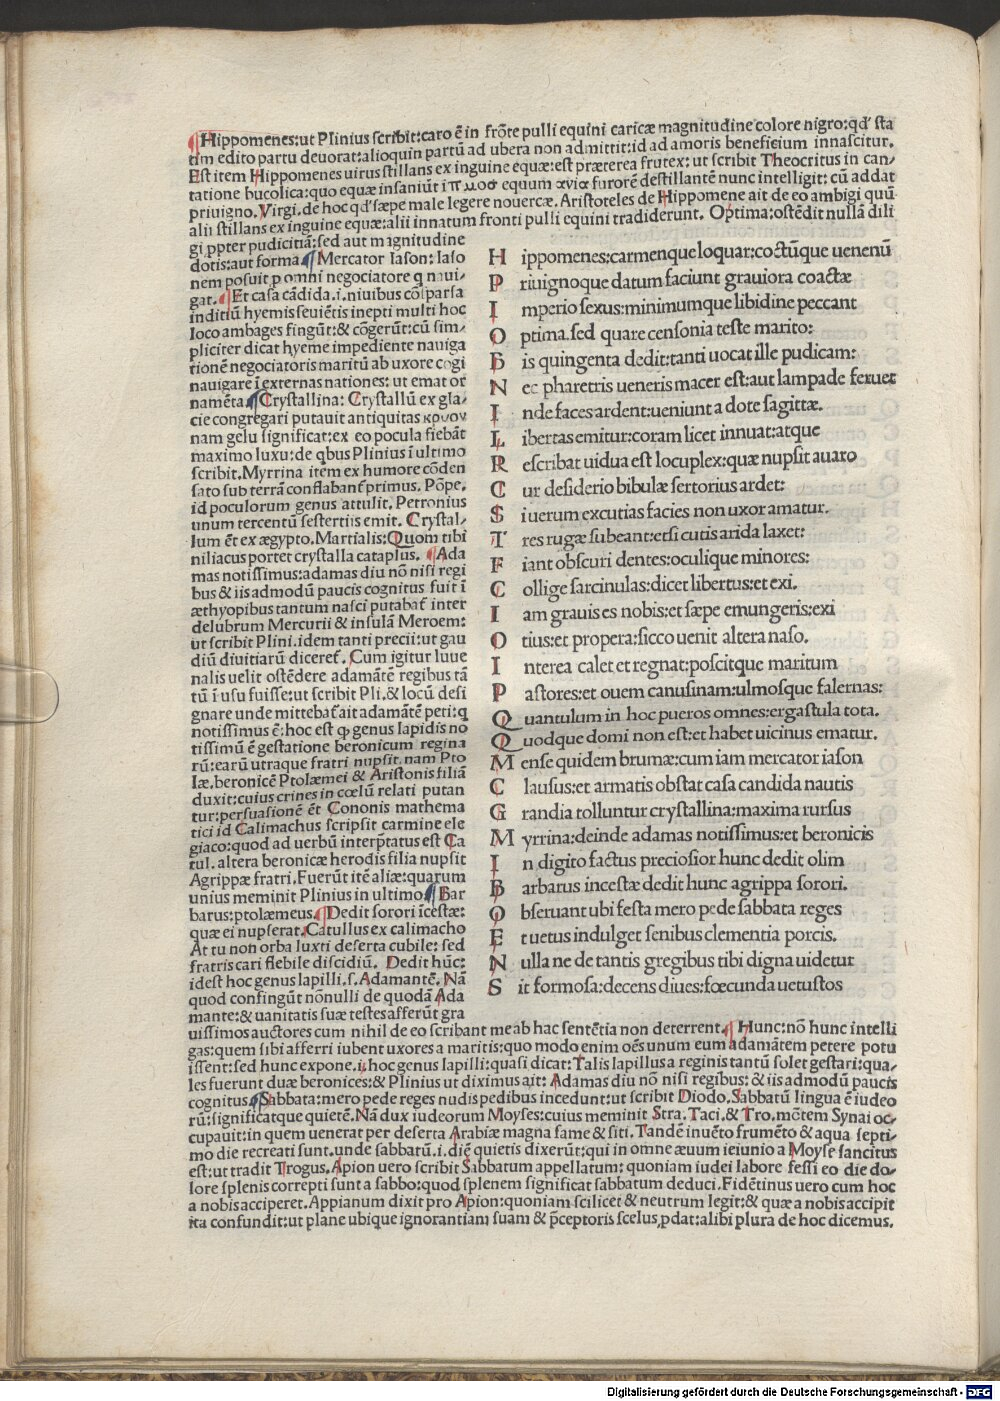 ¶Hippomenes:ut Plinius scribit:caro ē in frōte pulli equini caricæ magnitudine colore nigro:qď sta
tim edito partu deuorat:alioquin partū ad ubera non admittit:id ad amoris beneficium innascitur.
Est item Hippomenes uirus stillans ex inguine equæ:est præterea frutex: ut scribit Theocritus in can/
tatione bucolica:quo equæ insaniūt
priuigno. Virgi. de hoc qď sæpe male legere nouercæ. Aristoteles de Hippomene ait de eo ambigi quū
alii stillans ex inguine equæ:alii innatum fronti pulli equini tradiderunt. Optima:ostēdit nullā dili
gi ppter pudicitiā:sed aut magnitudine
dotis:aut forma ¶Mercator Iason: Iaso
nem posuit p omni negociatore q naui/
gat. ¶Et casa cādida.i.niuibus cōsparsa
inditiū hyemis seuiētis inepti multi hoc
loco ambages fingūt:& cōgerūt:cū sim/
pliciter dicat hyeme impediente nauiga
tionē negociatoris maritū ab uxore cogi
nauigare ī externas nationes: ut emat or
namēta. ¶Crystallina: Crystallū ex gla/
cie congregari putauit antiquitas κρυον
nam gelu significat:ex eo pocula fiebāt
maximo luxu:de qbus Plinius ī ultimo
scribit. Myrrina item ex humore cōden
sato sub terrā conflabant̄ primus. Pōpe.
id poculorum genus attulit. Petronius
unum tercentū sestertiis emit. Crystal/
lum ēt ex ægypto. Martialis:Quom tibi
niliacus portet crystalla cataplus. ¶Ada
mas notissimus:adamas diu nō nisi regi
bus & iis admodū paucis cognitus fuit ī
æthyopibus tantum nasci putabat̄ inter
delubrum Mercurii & insulā Meroem:
ut scribit Plini.idem tanti precii:ut gau
diū diuitiarū diceret̄. Cum igitur Iuue
nalis uelit ostēdere adamātē regibus tā
tū ī usu fuisse:ut scribit Pli.& locū desi
gnare unde mittebat̄ ait adamātē peti:q
notissimus ē: hoc est qp genus lapidis no
tissimū ē gestatione beronicum regina
rū:earū utraque fratri nupsit.nam Pto
læ.beronicē Ptolæmei & Aristonis filiā
duxit:cuius crines in cœlū relati putan
tur:persuasionē ēt Cononis mathema
tici id Calimachus scripsit carmine ele
giaco:quod ad uerbū interp̄tatus est Ca
tul. altera beronicæ herodis filia nupsit
Agrippæ fratri. Fuerūt itē aliæ:quarum
unius meminit Plinius in ultimo ¶Bar
barus:ptolæmeus. ¶Dedit sorori īcestæ:
quæ ei nupserat. Catullus ex calimacho
At tu non orba luxti deserta cubile: sed
fratris cari flebile discidiū. Dedit hūc:
idest hoc genus lapilli.s.Adamantē. Nā
quod confingūt nōnulli de quodā Ada
mante:& uanitatis suæ testes afferūt gra
uissimos auctores cum nihil de eo scribant me ab hac sentētia non deterrent. ¶Hunc:nō hunc intelli
gas:quem sibi afferri iubent uxores a maritis:quo modo enim oēs unum eum adamātem petere potu
issent:sed hunc expone.i.hoc genus lapilli:quasi dicat:Talis lapillus a reginis tantū solet gestari:qua/
les fuerunt duæ beronices:& Plinius ut diximus ait: Adamas diu nō nisi regibus: & iis admodū paucis
cognitus. ¶Sabbata:mero pede reges nudis pedibus incedunt:ut scribit Diodo. Sabbatū lingua ē iudeo
rū:significatque quietē. Nā dux iudeorum Moyses:cuius meminit Stra. Taci.& Tro.mōtem Synai oc/
cupauit:in quem uenerat per deserta Arabiæ magna fame & siti. Tandē inuēto frumēto & aqua septi/
mo die recreati sunt.unde sabbatū.i.diē quietis dixerūt:qui in omne æuum ieiunio a Moyse sancitus
est:ut tradit Trogus. Apion uero scribit Sabbatum appellatum: quoniam iudei labore fessi eo die do/
lore splenis correpti sunt a sabbo:quod splenem significat sabbatum deduci. Fidētinus uero cum hoc
a nobis acciperet. Appianum dixit pro Apion:quoniam scilicet & neutrum legit:& quæ a nobis accipit
ita confundit:ut plane ubique ignorantiam suam & p̄ceptoris scelus pdat:alibi plura de hoc dicemus.
H ippomenes:carmenque loquar:coctūque uenenū
P riuignoque datum faciunt grauiora coactæ
I mperio sexus:minimumque libidine peccant
O ptima.sed quare censonia teste marito:
B is quingenta dedit:tanti uocat ille pudicam:
N ec pharetris ueneris macer est:aut lampade feruet
I nde faces ardent:ueniunt a dote sagittæ.
L ibertas emitur:coram licet innuat:atque
R escribat uidua est locuplex:quæ nupsit auaro
C ur desiderio bibulæ sertorius ardet:
S i uerum excutias facies non uxor amatur.
T res rugæ subeant:etsi cutis arida laxet:
F iant obscuri dentes:oculique minores:
C ollige sarcinulas:dicet libertus:et exi.
I am grauis es nobis:et sæpe emungeris:exi
O tius:et propera:sicco uenit altera naso.
I nterea calet et regnat:poscitque maritum
P astores:et ouem canusinam:ulmosque falernas:
Q uantulum in hoc pueros omnes:ergastula tota.
Q uodque domi non est:et habet uicinus ematur.
M ense quidem brumæ:cum iam mercator iason
C lausus:et armatis obstat casa candida nautis
G randia tolluntur crystallina:maxima rursus
M yrrina:deinde adamas notissimus:et beronicis
I n digito factus preciosior hunc dedit olim
B arbarus incestæ dedit hunc agrippa sorori.
O bseruant ubi festa mero pede sabbata reges
E t uetus indulget senibus clementia porcis.
N ulla ne de tantis gregibus tibi digna uidetur
S it formosa:decens diues:fœcunda uetustos
Digitalisierung gefördert durch die Deutsche Forschungsgemeinschaft - DFG